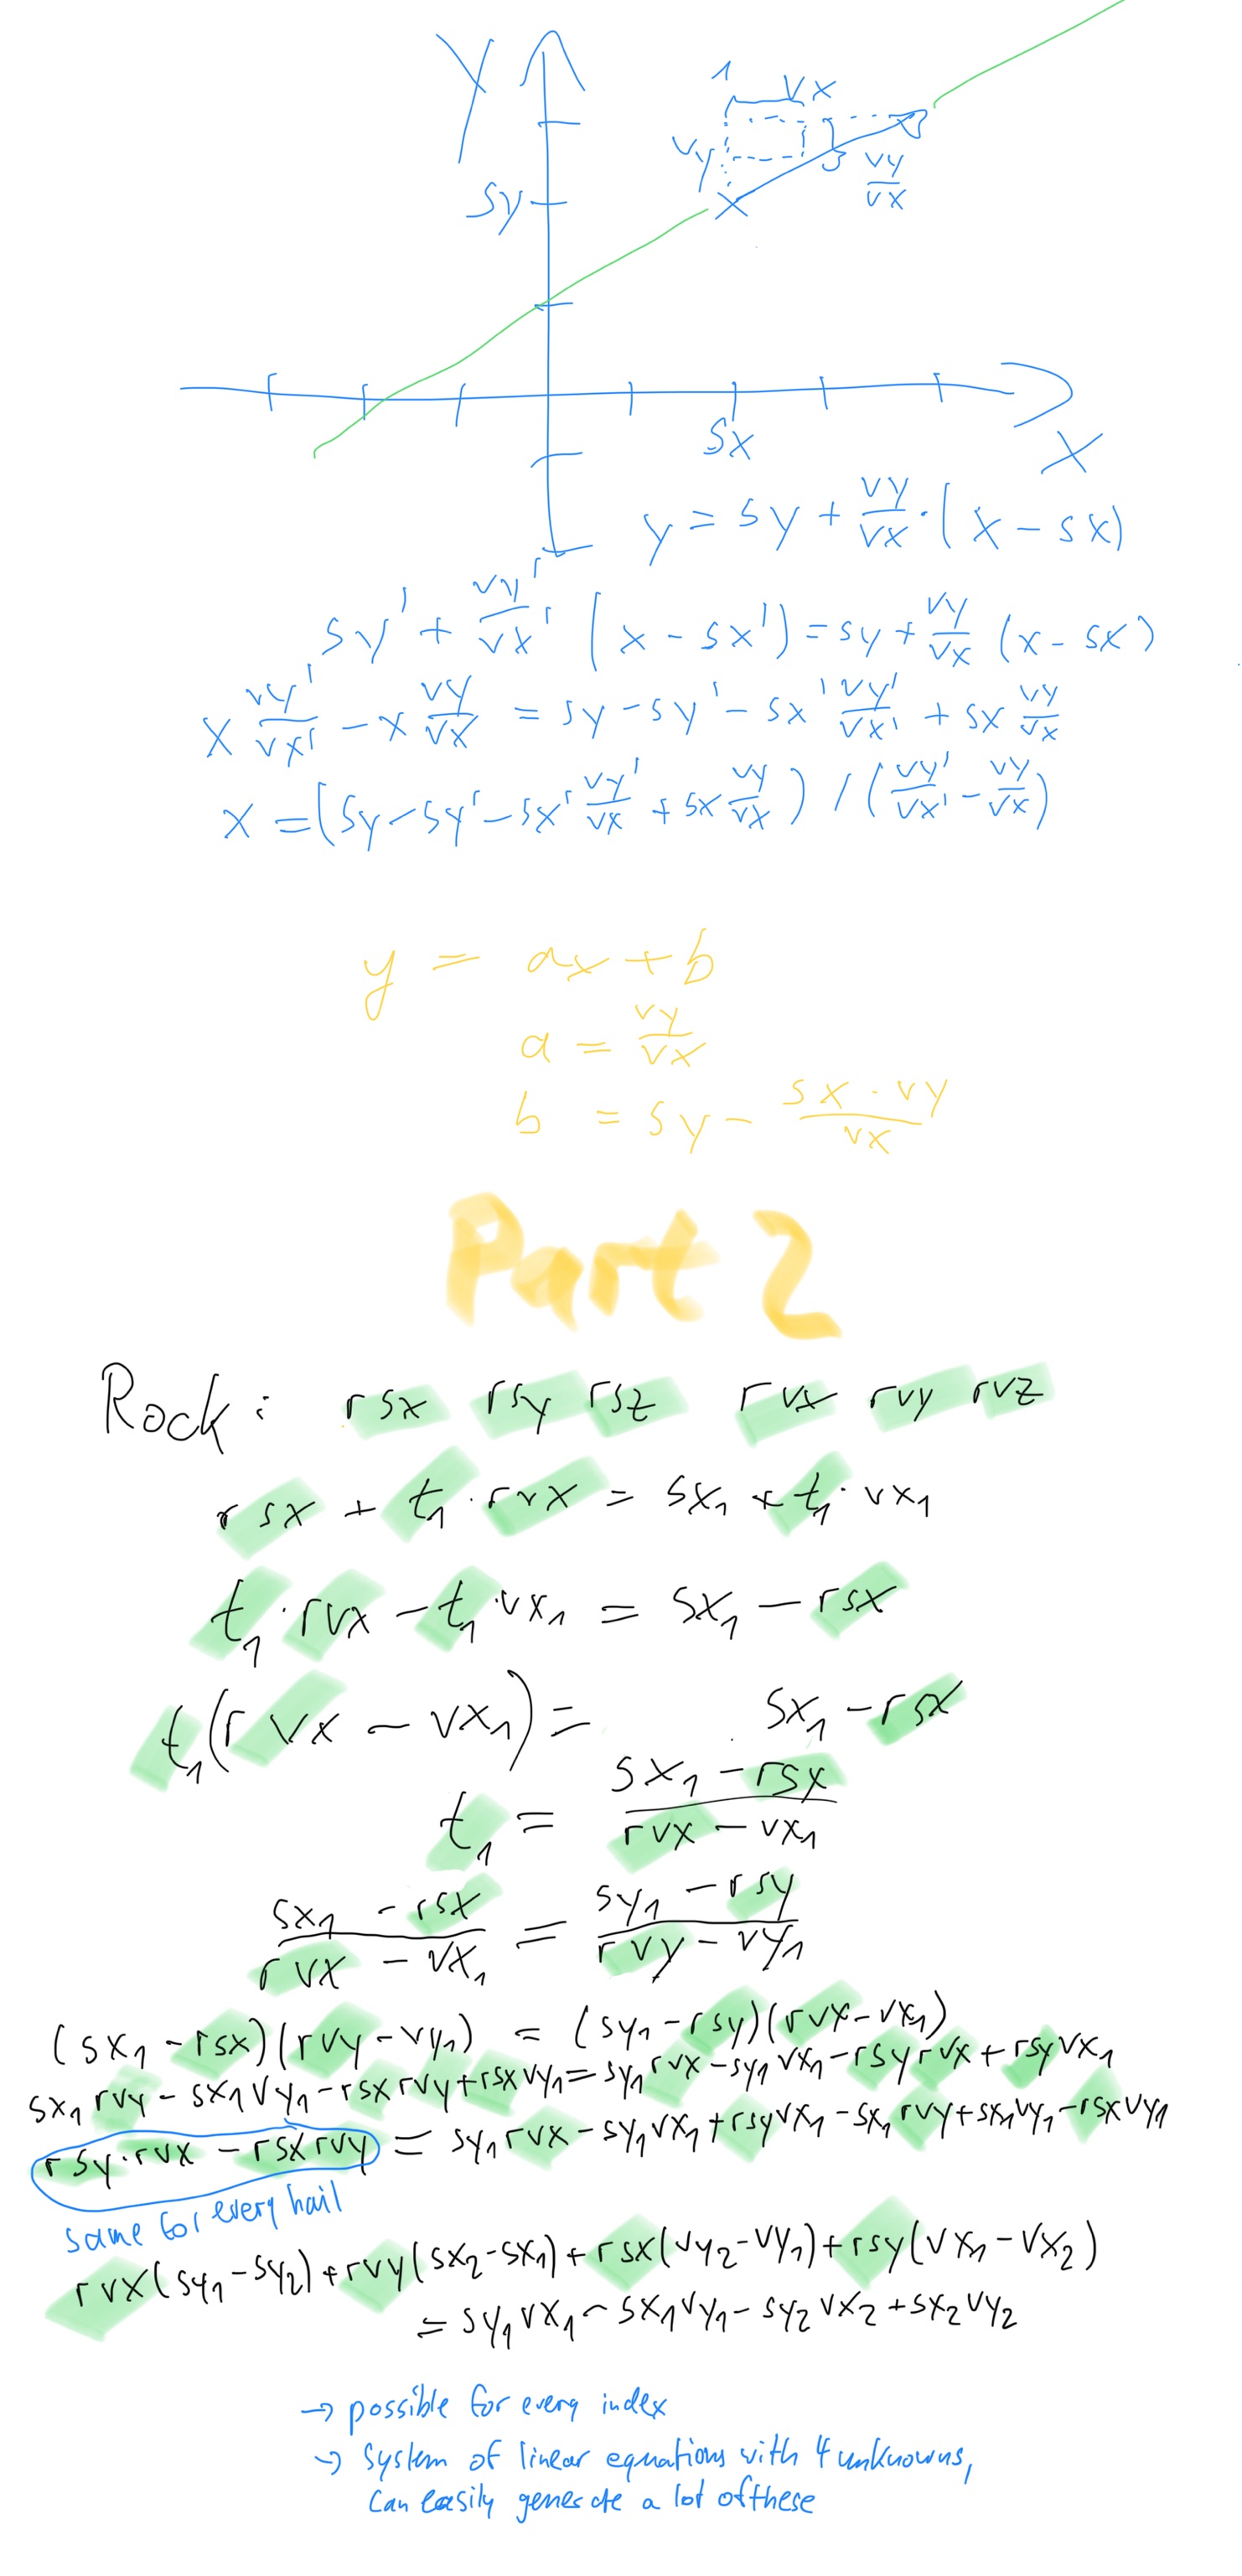 Y
1 vx
vy
vy/vx
sy
sx
x
y = sy + vy/vx · (x - sx)
sy' + vy'/vx' (x - sx') = sy + vy/vx (x - sx)
x vy'/vx' - x vy/vx = sy - sy' - sx' vy'/vx' + sx vy/vx
x = (sy - sy' - sx' vy'/vx + sx vy/vx) / (vy'/vx' - vy/vx)
y = ax + b
a = vy/vx
b = sy - sx · vy/vx
Part 2
Rock: rsx rsy rsz rvx rvy rvz
rsx + t₁ · rvx = sx₁ + t₁ · vx₁
t₁ · rvx - t₁ · vx₁ = sx₁ - rsx
t₁(rvx - vx₁) = sx₁ - rsx
t₁ = (sx₁ - rsx)/(rvx - vx₁)
(sx₁ - rsx)/(rvx - vx₁) = (sy₁ - rsy)/(rvy - vy₁)
(sx₁ - rsx)(rvy - vy₁) = (sy₁ - rsy)(rvx - vx₁)
sx₁ rvy - sx₁ vy₁ - rsx rvy + rsx vy₁ = sy₁ rvx - sy₁ vx₁ - rsy rvx + rsy vx₁
rsy · rvx - rsx rvy = sy₁ rvx - sy₁ vx₁ + rsy vx₁ - sx₁ rvy + sx₁ vy₁ - rsx vy₁
same for every hail
rvx(sy₁ - sy₂) + rvy(sx₂ - sx₁) + rsx(vy₂ - vy₁) + rsy(vx₁ - vx₂)
= sy₁ vx₁ - sx₁ vy₁ - sy₂ vx₂ + sx₂ vy₂
→ possible for every index
→ system of linear equations with 4 unknowns,
can easily generate a lot of these